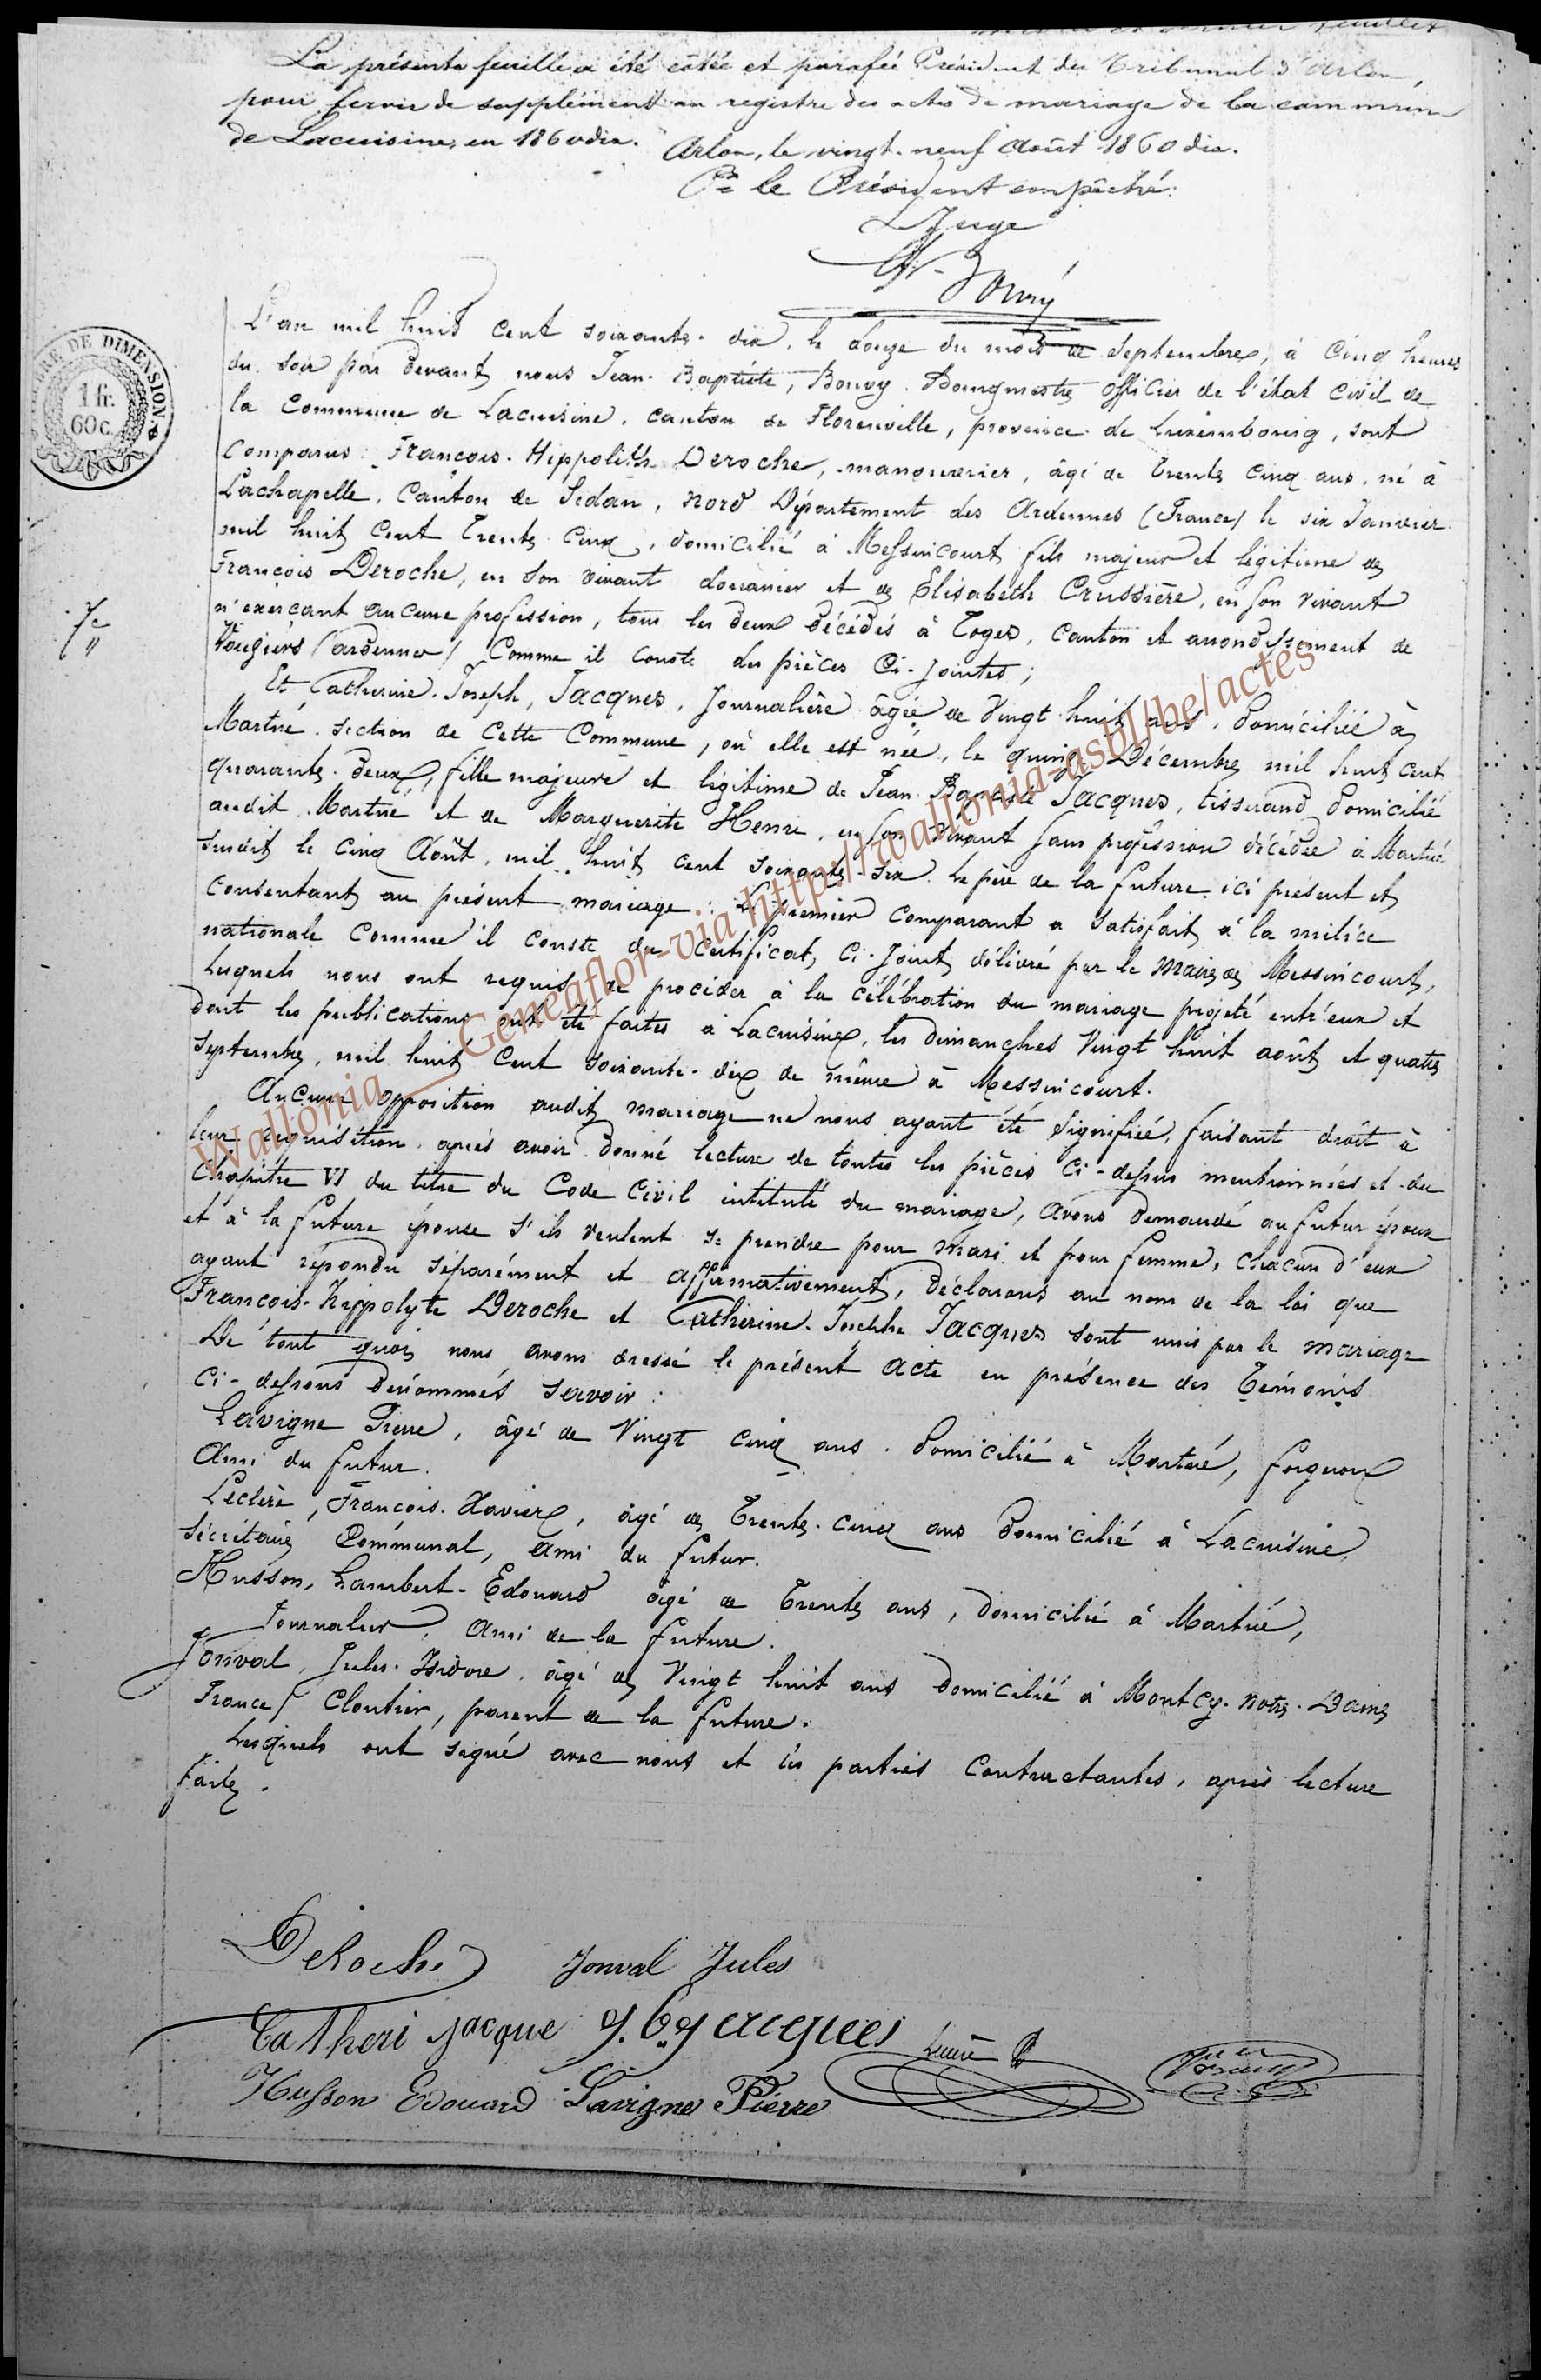 La présente feuille a été cotée et parafée Président du Tribunal d'Arlon,
pour servir de supplément au registre des actes de mariage de la commune
de Lacuisine, en 1860dix.
Arlon, le vingt-neuf Août 1860 dix.
Pr le Président empêché:
L Juge
TIMBRE DE DIMENSION
1 fr.
60 c.
L'an mil huit cent soixante-dix, le douze du mois de Septembre, à cinq heures
du soir par devant nous Jean-Baptiste, Bouvy Bourgmestre officier de l'état civil de
la Commune de Lacuisine, canton de Florenville, province de Luxembourg, sont
Comparus: François-Hippolite Deroche, manouvrier, âgé de trente cinq ans, né à
Lachapelle, Canton de Sedan, nord Département des Ardennes (France) le six Janvier
mil huit cent trente cinq, domicilié à Messincourt fils majeur et légitime de
François Deroche, en son vivant douanier et de Elisabeth Crussière, en son vivant
n'exerçant aucune profession, tous les deux décédés à Toges, canton et arrondissement de
Vougiers (ardennes) Comme il conste des pièces Ci-jointes;
7e
"
Et Catherine-Joseph, Jacques, Journalière âgée de Vingt huit ans, domiciliée à
Martué section de Cette Commune, où elle est née, le quinze Décembre mil huit cent
quarante-deux, fille majeure et légitime de Jean Baptiste Jacques, tisserand domicilié
audit Martué et de Marguerite Henri, en son vivant sans profession décédée à Martué
susdit le cinq Août, mil huit cent soixante-six le père de la future ici présent et
consentant au présent mariage: Le premier comparant a satisfait à la milice
nationale Comme il conste du certificat, ci-joint, délivré par le Maire de Messincourt,
Lesquels nous ont requis de procéder à la célébration du mariage projeté entr'eux et
dont les publications ont été faites à Lacuisine, les dimanches Vingt huit août et quatre
Septembre, mil huit Cent soixante-dix de même à Messincourt.
Aucune opposition audit mariage ne nous ayant été signifiée, faisant droit à
leur réquisition, après avoir donné lecture de toutes les pièces ci-dessus mentionnées et du
Chapitre VI du titre du Code Civil intitulé du mariage, avons demandé au futur époux
et à la future épouse s'ils veulent se prendre pour mari et pour femme, chacun d'eux
ayant répondu séparément et affirmativement, déclarons au nom de la loi que
François-hippolyte Deroche et Catherine-Josephe Jacques sont unis par le mariage
De tout quoi nous avons dressé le présent acte en présence des Témoins
Ci-dessous dénommés savoir:
Lavigne Pierre, âgé de Vingt cinq ans domicilié à Martué,
Ami du futur.
Leclère, François-Xavier, âgé de Trente-cinq ans domicilié à Lacuisine
Sécrétaire Communal, ami du futur.
Husson, Lambert-Edouard âgé de Trente ans, domicilié à Martué,
Journalier, Ami de la future.
Jonval, Jules-Isidore, âgé de Vingt huit ans domicilié à Montcy-notre-Dame
France) Cloutier, parent de la future.
Lesquels ont signé avec nous et les parties contractantes, après lecture
faite.
Wallonia__Geneaflor-via http://wallonia-asbl/be/actes
DeRoche Jonval Jules
Catheri jacque J. B. Jacques
Husson Edouard Lavigne Pierre